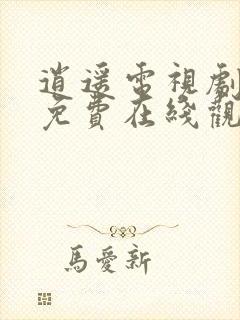 逍遥電視劇
免費在綫觀
馬愛新